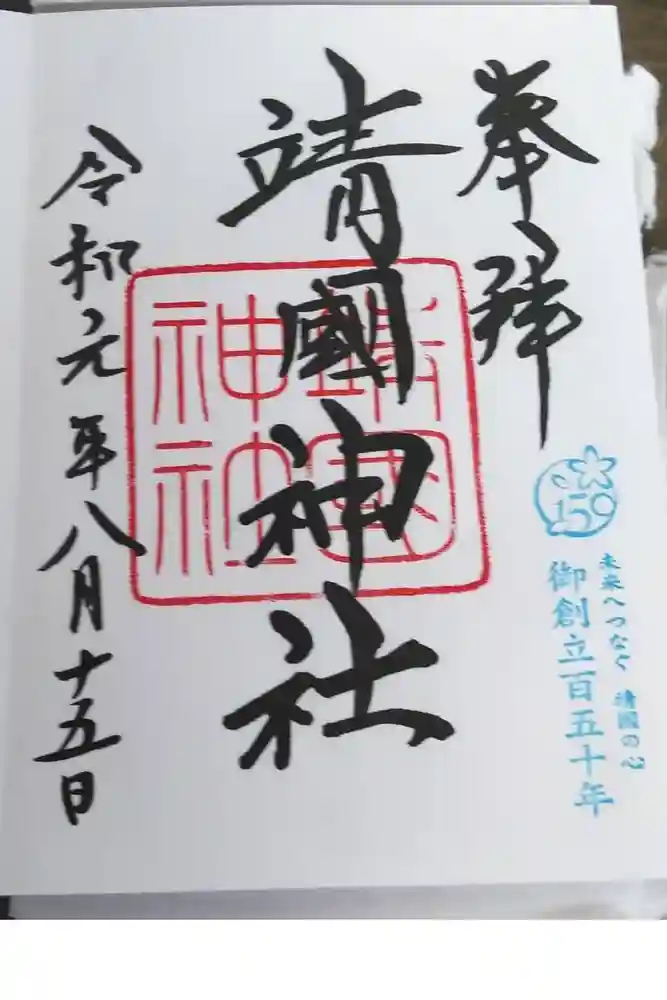 奉拜
靖國神社
靖國
神社
令和元年八月十五日
150
未来へつなぐ 靖國の心
御創立百五十年